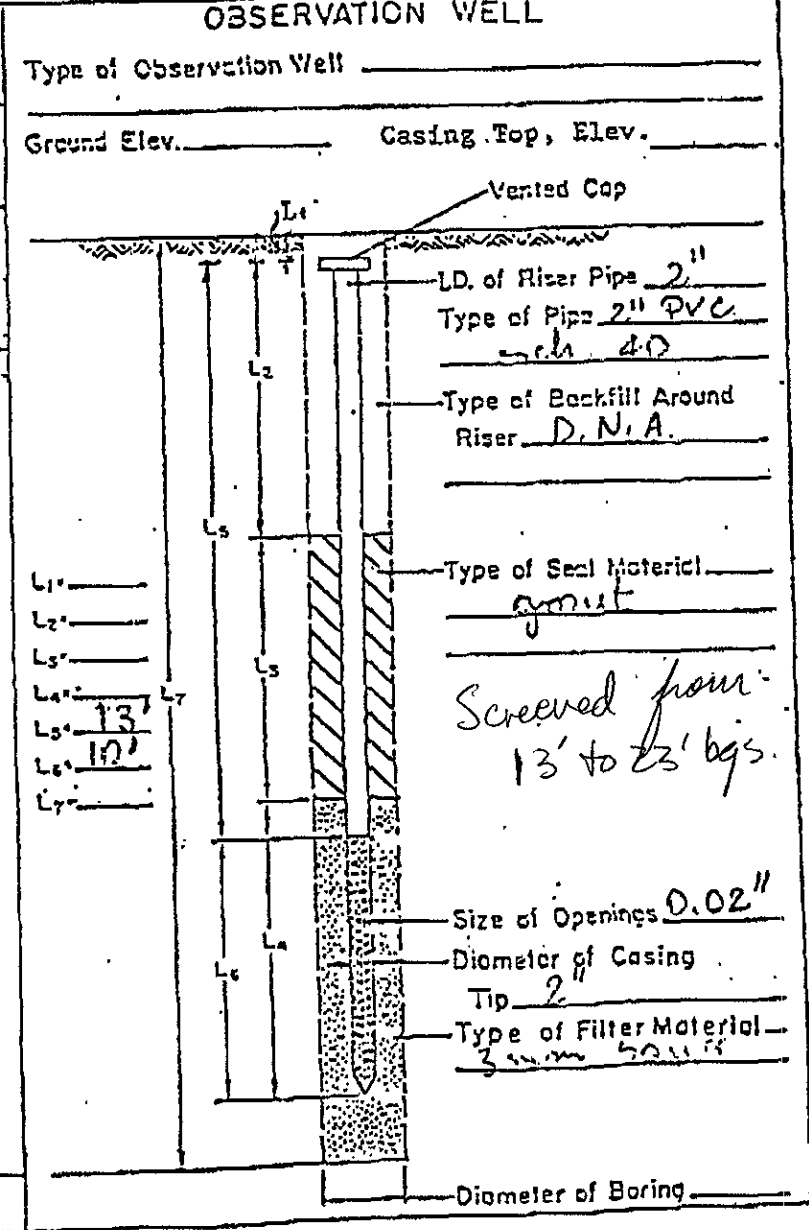 OBSERVATION WELL
Type of Observation Well
Ground Elev. Casing Top, Elev.
Vented Cap
L1
I.D. of Riser Pipe 2"
Type of Pipe 2" PVC
sch 40
L2
Type of Backfill Around
Riser D.N.A.
L5
Type of Seal Material
grout
L1=
L2=
L3=
L4=
L5= 13'
L6= 10'
L7=
L7
L3
Screened from
13' to 23' bgs.
Size of Openings 0.02"
L4
Diameter of Casing
L6
Tip 2"
Type of Filter Material
Diameter of Boring